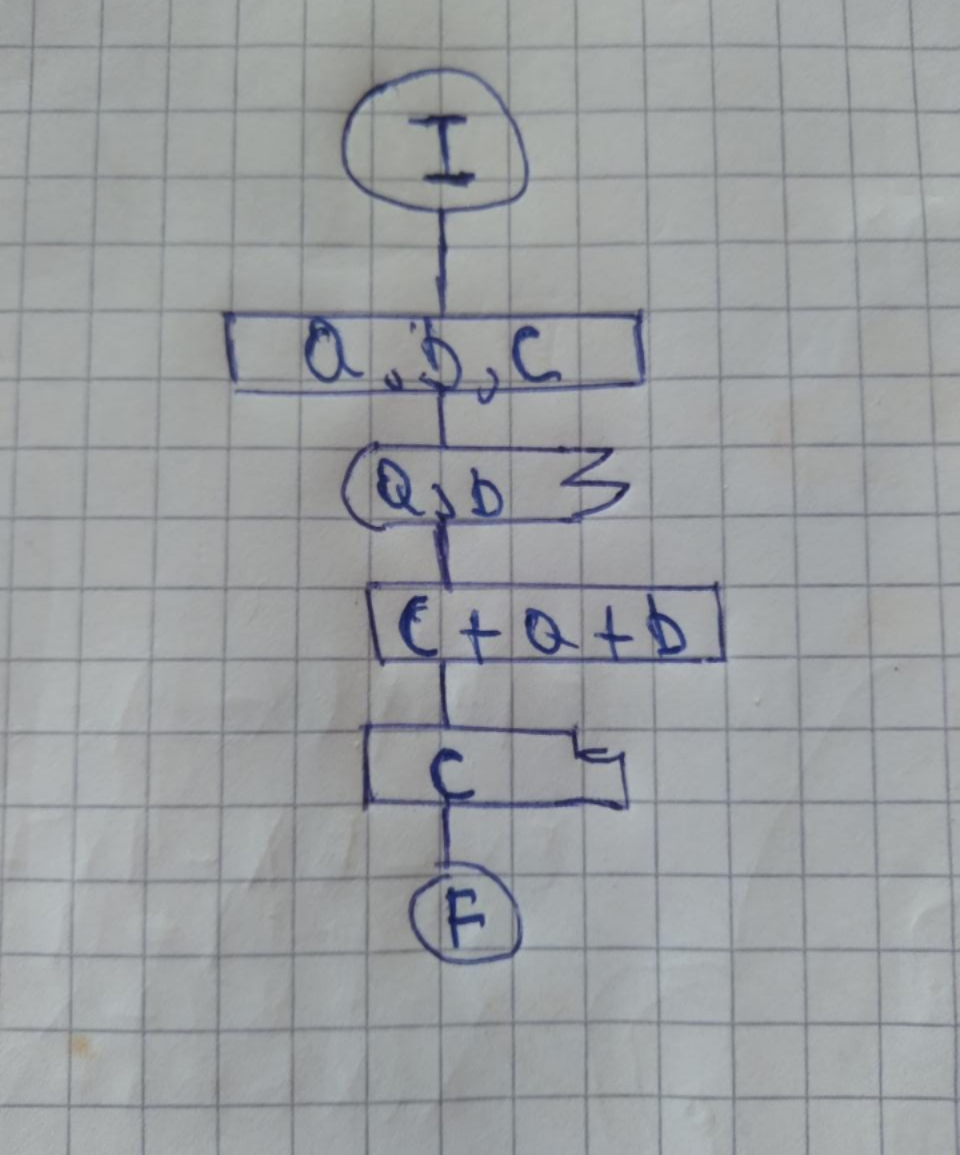 I
a, b, c
a, b
C + a + b
C
F